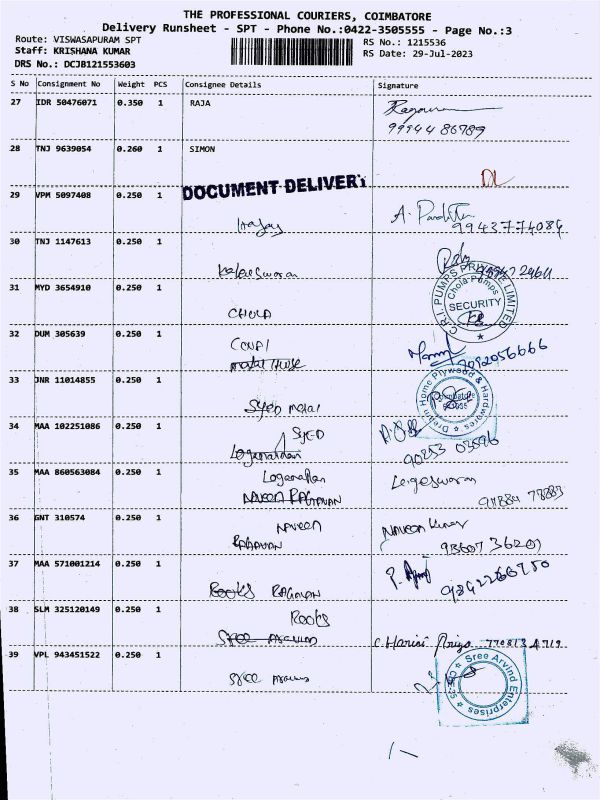 THE PROFESSIONAL COURIERS, COIMBATORE
Delivery Runsheet - SPT - Phone No.:0422-3505555 - Page No.:3
Route: VISWASAPURAM SPT RS No.: 1215536
Staff: KRISHANA KUMAR RS Date: 29-Jul-2023
DRS No.: DCJB121553603
S No Consignment No Weight PCS Consignee Details Signature
27 IDR 50476071 0.350 1 RAJA
9994486789
28 TNJ 9639054 0.260 1 SIMON
DOCUMENT DELIVERY
DL
29 VPM 5097408 0.250 1
9943774084
30 TNJ 1147613 0.250 1
Kalaeswaran
31 MYD 3654910 0.250 1
CHOLA
C.R.I. PUMPS PRIVATE LIMITED
Chola Pumps
SECURITY
32 DUM 305639 0.250 1
7092056666
33 JNR 11014855 0.250 1
Syed Metal
Dream Home Plywood & Hardwares
Coimbatore
34 MAA 102251086 0.250 1
SYED
Loganathan
90253 03596
35 MAA 860563084 0.250 1
Loganathan
NAVEEN RAGHAVAN
Logeswaran
36 GNT 310574 0.250 1
NAVEEN
RAGHAVAN
Naveen Kumar
93607 36207
37 MAA 571001214 0.250 1
Rooks RAGHAVAN
9842266750
38 SLM 325120149 0.250 1
Rooks
Sree Arvind
C. Harini Priya
39 VPL 943451522 0.250 1
Sree Arvind
Sree Arvind Enterprises
CBE-25